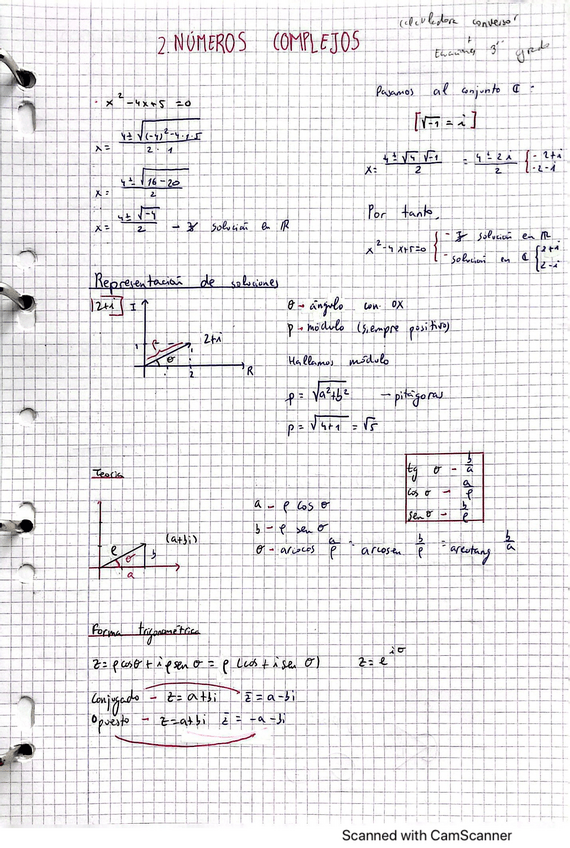 calculadora conversor
+
Ecuaciones 3er grado
2. NÚMEROS COMPLEJOS
· x² - 4x + 5 = 0
x = (4 ± √((-4)² - 4·1·5)) / (2 · 1)
x = (4 ± √(16 - 20)) / 2
x = (4 ± √-4) / 2 → ∄ solución en ℝ
Pasamos al conjunto ℂ.
[√-1 = i]
x = (4 ± √4 · √-1) / 2 = (4 ± 2i) / 2 { - 2+i
- 2-i
Por tanto,
x² - 4x + 5 = 0 { - ∄ solución en ℝ
- solución en ℂ { 2+i
2-i
Representación de soluciones
|2+i| I
ρ 2+i
1 θ
2 R
θ → ángulo con OX
ρ → módulo (siempre positivo)
Hallamos módulo
ρ = √(a² + b²) → pitágoras
ρ = √(4+1) = √5
Teoría
tg θ - b/a
cos θ - a/ρ
sen θ - b/ρ
ρ (a+bi)
θ b
a
a - ρ cos θ
b - ρ sen θ
θ - arcocos a/ρ = arcosen b/ρ = arcotang b/a
Forma trigonométrica
z = ρ cos θ + i ρ sen θ = ρ (cos + i sen θ) z = e^iθ
Conjugado - z = a + bi z̄ = a - bi
Opuesto - z = a + bi z̄ = -a - bi
Scanned with CamScanner